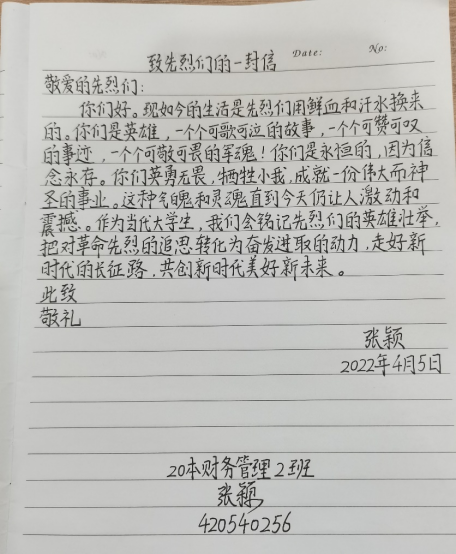 Date: No:
致先烈们的一封信
敬爱的先烈们:
你们好。现如今的生活是先烈们用鲜血和汗水换来
的。你们是英雄,一个个可歌可泣的故事,一个个可赞可叹
的事迹,一个个可敬可畏的军魂!你们是永恒的,因为信
念永存。你们英勇无畏,牺牲小我,成就一份伟大而神
圣的事业。这种气魄和灵魂直到今天仍让人激动和
震撼。作为当代大学生,我们会铭记先烈们的英雄壮举,
把对革命先烈的追思转化为奋发进取的动力,走好新
时代的长征路,共创新时代美好新未来。
此致
敬礼
张颖
2022年4月5日
20本财务管理2班
张颖
420540256